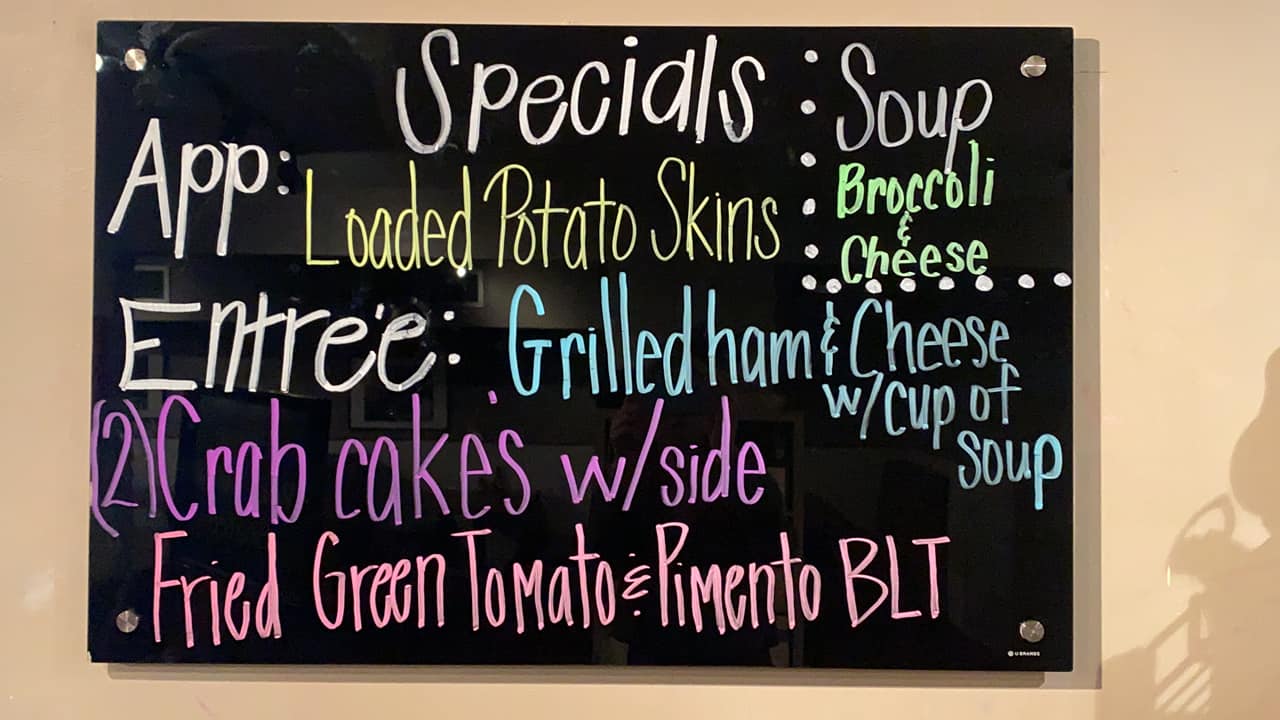 Specials
App: Loaded Potato Skins
Soup
Broccoli
&
Cheese
Entreé: Grilled ham & Cheese
w/cup of
soup
(2) Crab cakes w/side
Fried Green Tomato & Pimento BLT
U BRANDS